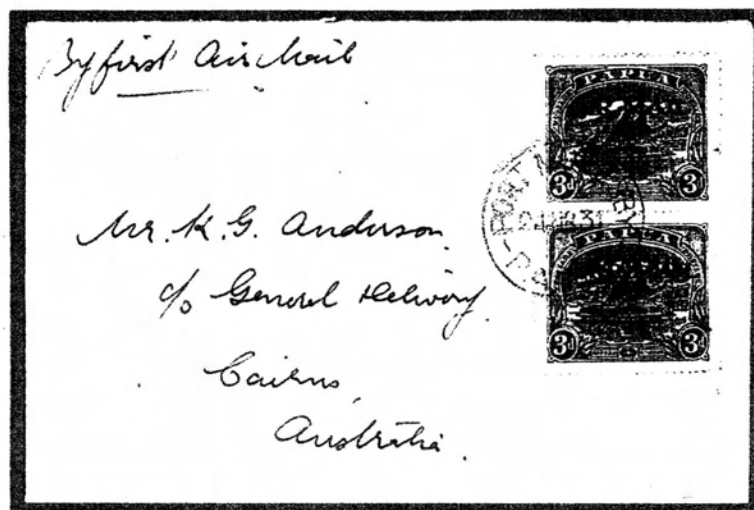 By first Air Mail
PAPUA
3d 3d
PORT
PAPUA
3d 3d
Mr. K. G. Anderson
c/o General Delivery.
Cairns,
Australia.